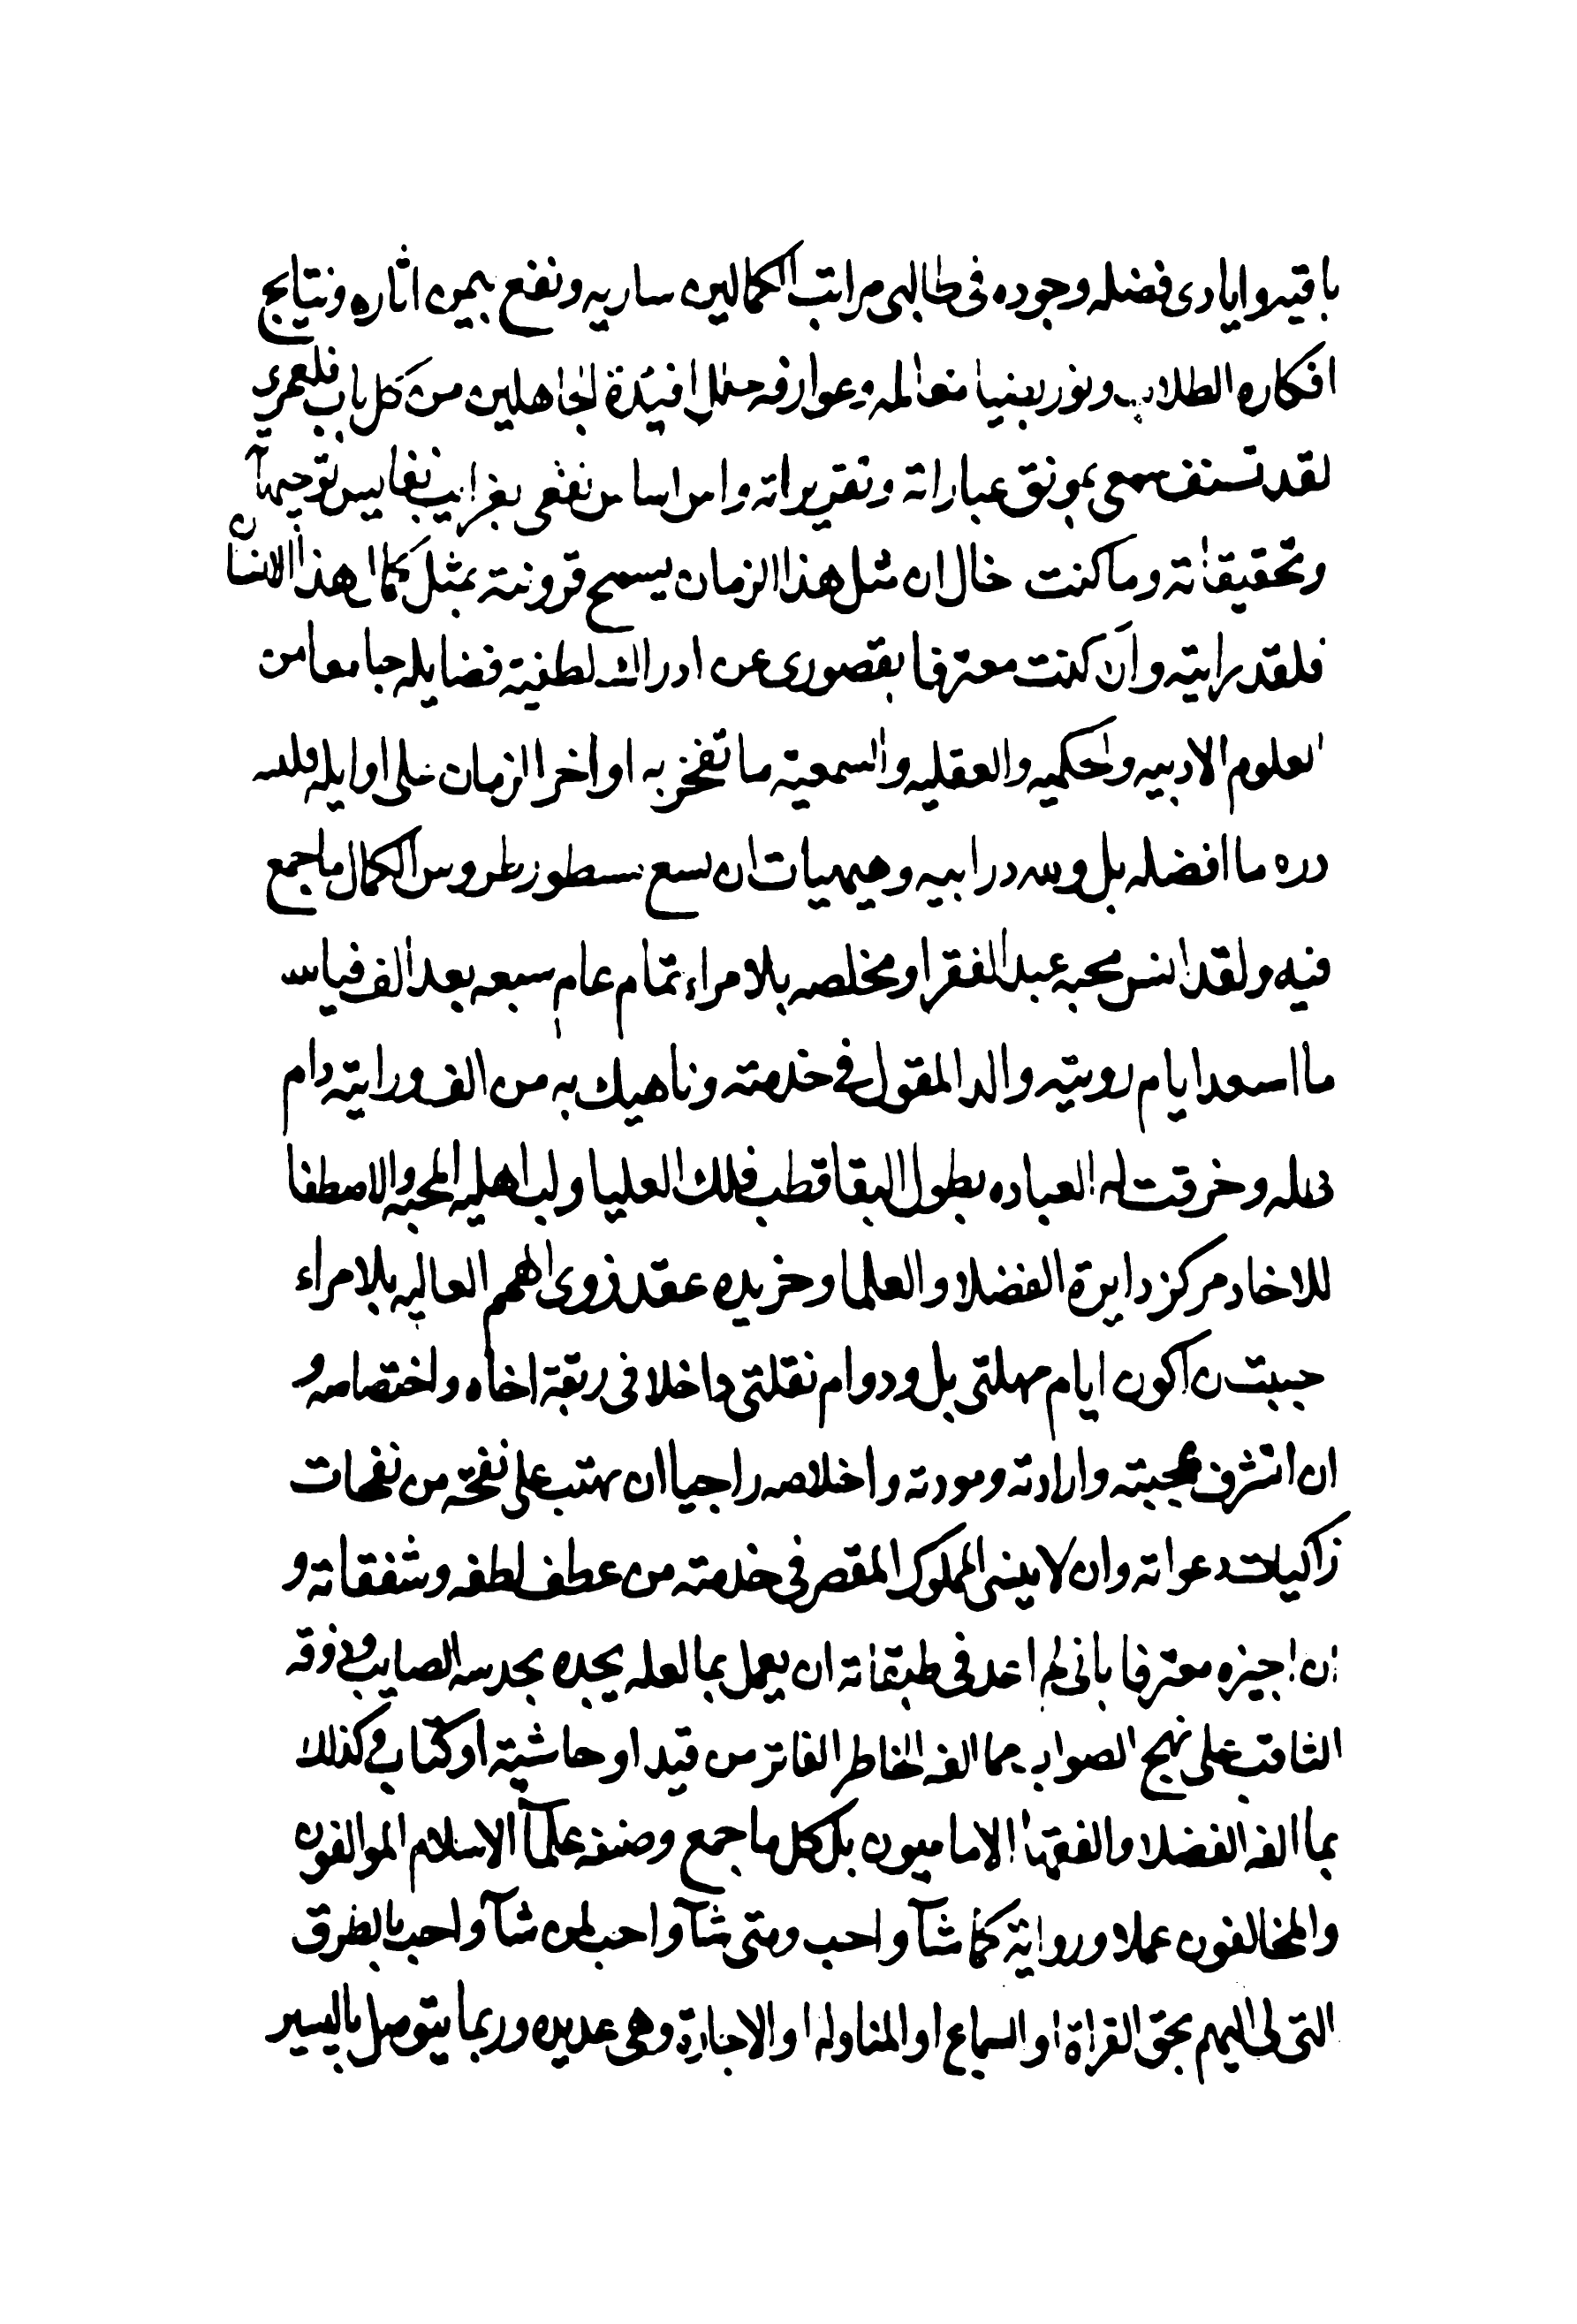 باقيه وايادى فضله وجوده فى طالبى مراتب الكمالين ساريه ونفع بيمن اثاره ونتايج
افكاره الطلاب ونور بضيا معالمه وعوارفه افئدة الجاهلين من كل باب فلعمرى
لقد تشنف سمعى بمونق عباراته وتقريراته نفسى بغرايب نفايس توجيهاته
وتحقيقاته وما كنت خال ان مثل هذا الزمان يسمح قرونته بمثل كمال هذا الانسان
فلقد رايته وان كنت معترفا بقصورى عن ادراك لطفية فضايله جامعا من
العلوم الادبيه والحكميه والعقليه والسمعية ما تفخر به اواخر الزمان على اوايله فلله
دره ما افضله بل ولله در ابيه وهيهيات ان تسع سطور طروس الكمال ما جمع
فيه ولقد انس محبه عبد الفقرا ومخلصه بلا مراء تمام عام سبعه بعد الف فيالله
ما اسعد ايام رويته والد المقول فى خدمته وناهيك به من الف ورايته دام
ظله وخرقت له العباده بطول البقا قطب فلك العليا ولب اهليه المحبه والاصطفا
للاخاد مركز دايرة الفضلا والعلما وخريده عقد ذوى الهمم العاليه بلا مراء
حببت ن اكون ايام مهلتى بل ودوام نقلتى داخلا فى ربقة اخاه واختصاصه و
ان اتشرف بمحبته وارادته ومودته واخلاصه راجيا ان يهتب على نفحة من نفحات
زاكيات دعواته وان لا ينسى المملوك المقصر فى خدمته من عطف لطفه وشفقاته و
ان اجيزه معترفا بانى لم اعد فى طبقاته ان يعمل بما لعله يجده بحدسه الصايب وذوقه
الثاقب على نهج الصواب مما الفه الخاطر الفاتر من قيد او حاشية او كتاب وكذلك
بما الفه الفضلا والفقها الاماميون بل كل ما جمع وصنفه علمآ الاسلام الموالفون
والمخالفون عملا ورواية كما شآ واحب ومتى شآ واحب لمن شآ واحب بالطرق
التى لى اليهم بحق القراة او السماع او المناوله او الاجازة وهى عديده وربما يتوصل باليسير